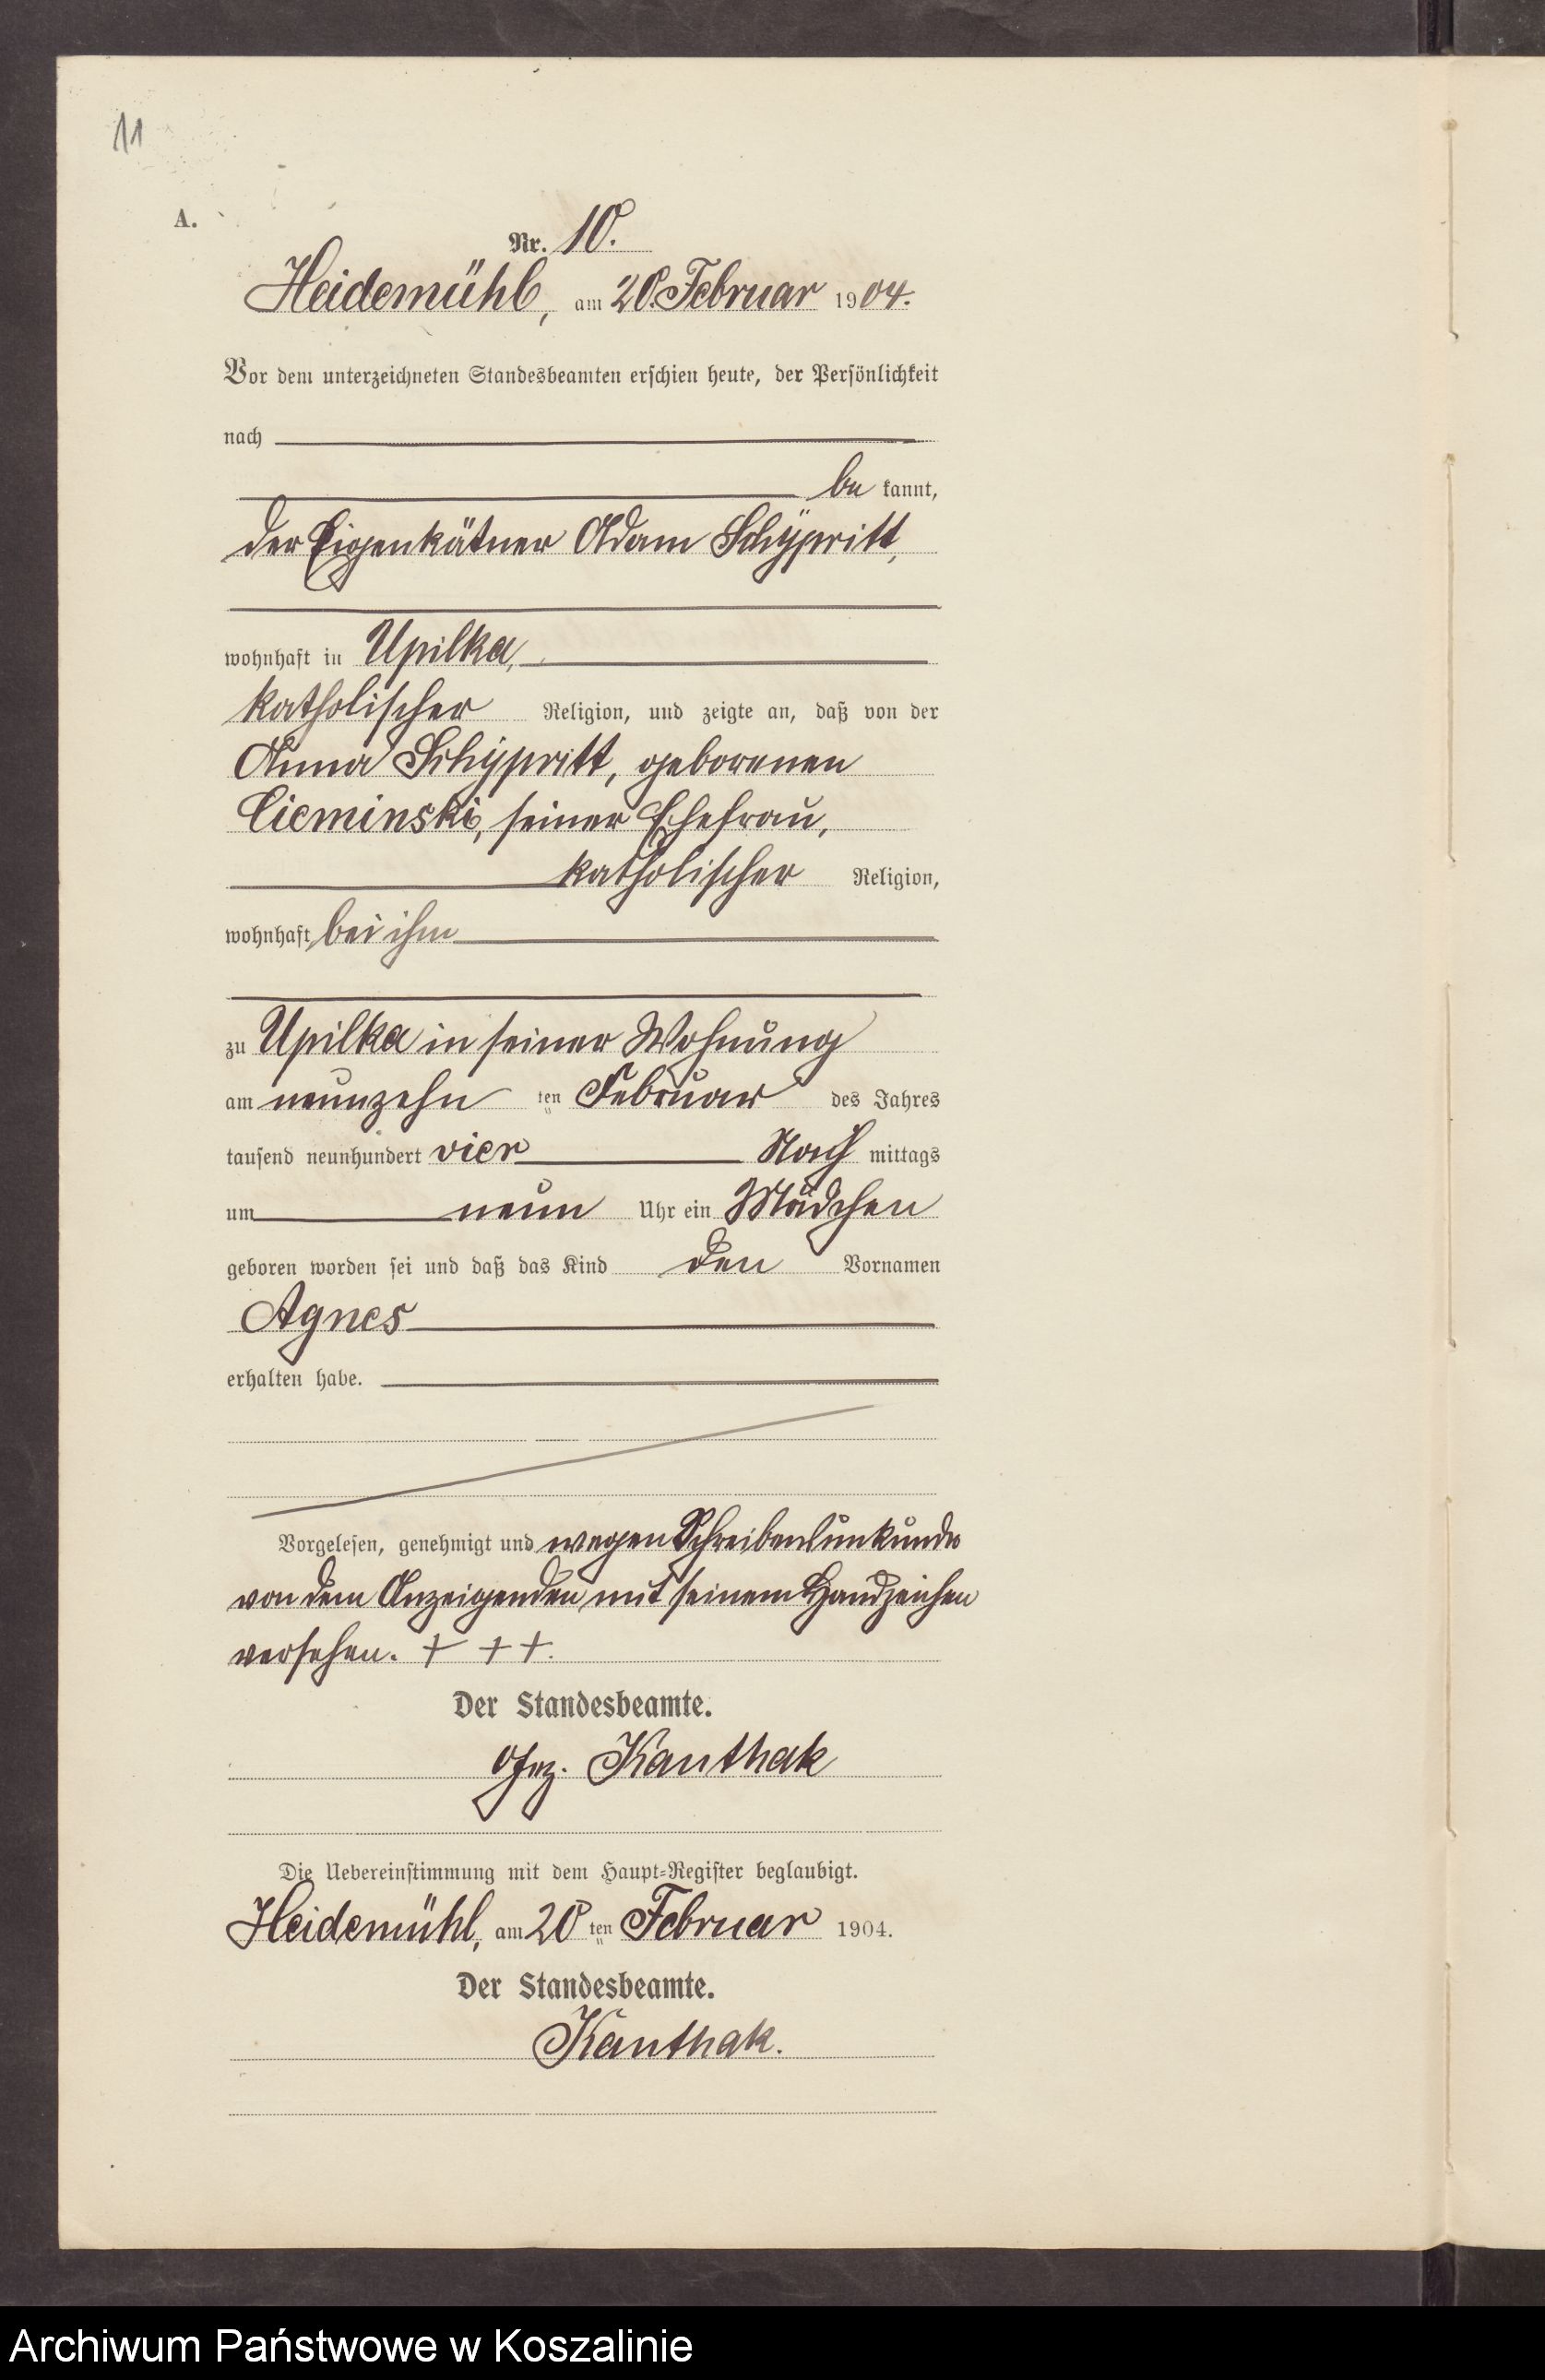 11
A.
Nr. 10.
Heidemühl, am 20. Februar 1904.
Vor dem unterzeichneten Standesbeamten erschien heute, der Persönlichkeit
nach
be kannt,
der Eigenkätner Adam Schÿpritt,
wohnhaft in Upilka,
katholischer Religion, und zeigte an, daß von der
Anna Schÿpritt, geborenen
Cieminski, seiner Ehefrau,
katholischer Religion,
wohnhaft bei ihm
zu Upilka in seiner Wohnung
am neunzehn ten Februar des Jahres
tausend neunhundert vier Nach mittags
um neun Uhr ein Mädchen
geboren worden sei und daß das Kind den Vornamen
Agnes
erhalten habe.
Vorgelesen, genehmigt und wegen Schreibensunkunde
von dem Anzeigenden mit seinem Handzeichen
versehen. + + +.
Der Standesbeamte.
Gez. Kanthak
Die Uebereinstimmung mit dem Haupt-Register beglaubigt.
Heidemühl, am 20 ten Februar 1904.
Der Standesbeamte.
Kanthak.
Archiwum Państwowe w Koszalinie